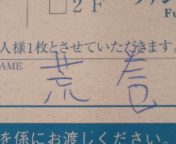 □2F ファン
Fu
人様1枚とさせていただきます。
AME
荒巻
を係にお渡しください。